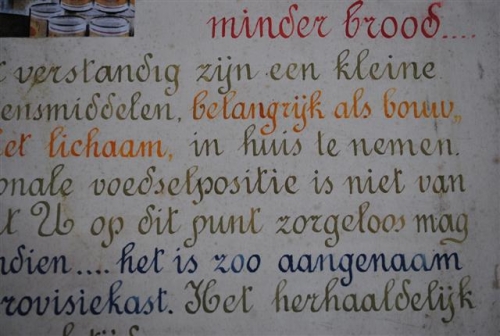 minder brood....
t verstandig zijn een kleine
ensmiddelen, belangrijk als bouw„
et lichaam, in huis te nemen.
onale voedselpositie is niet van
t U op dit punt zorgeloos mag
ndien.... het is zoo aangenaam
rovisiekast. Het herhaaldelijk